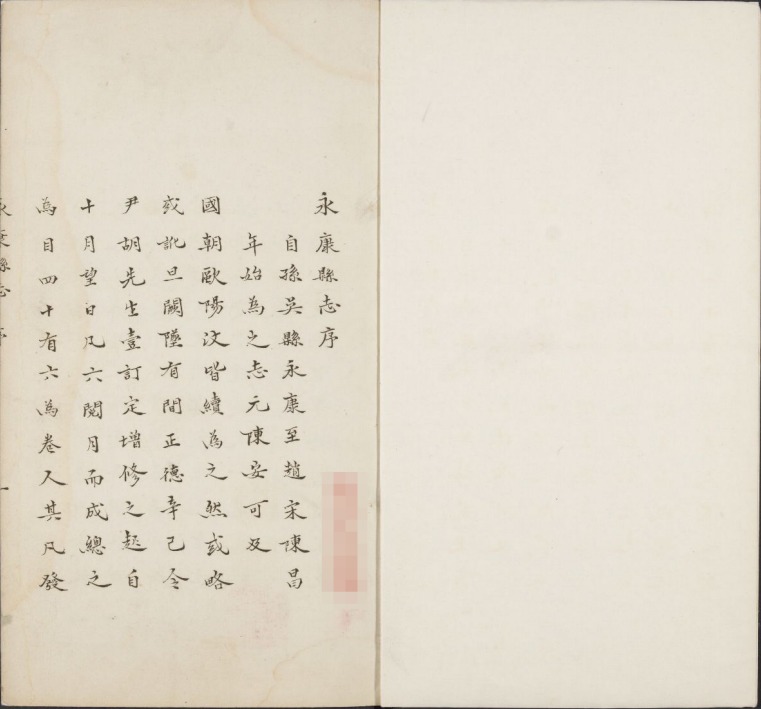 永康縣志序
自孫吳縣永康至趙宋陳昌
年始為之志元陳安可及
國朝歐陽汶皆續為之然或略
或訛且闕墜有間正德辛巳令
尹胡先生壹訂定增修之起自
十月望日凡六閱月而成總之
為目四十有六為卷八其凡發
永康縣志 序
一